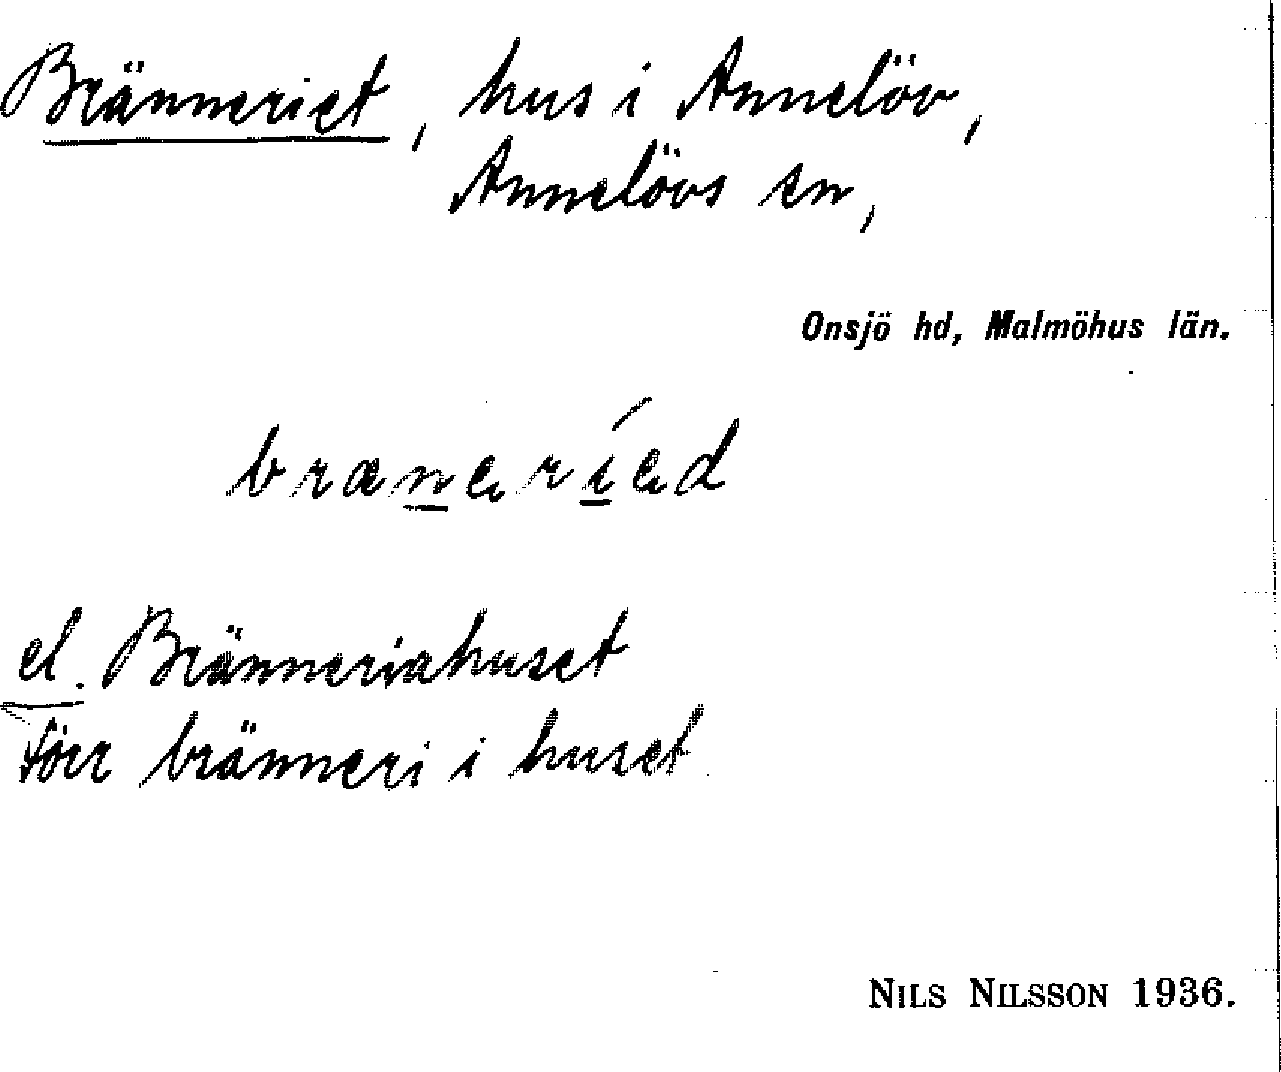 Bränneriet, hus i Annelöv,
Annelövs sn,
Onsjö hd, Malmöhus län.
brænəríəd
el. Bränneriahuset
förr bränneri i huset.
NILS NILSSON 1936.